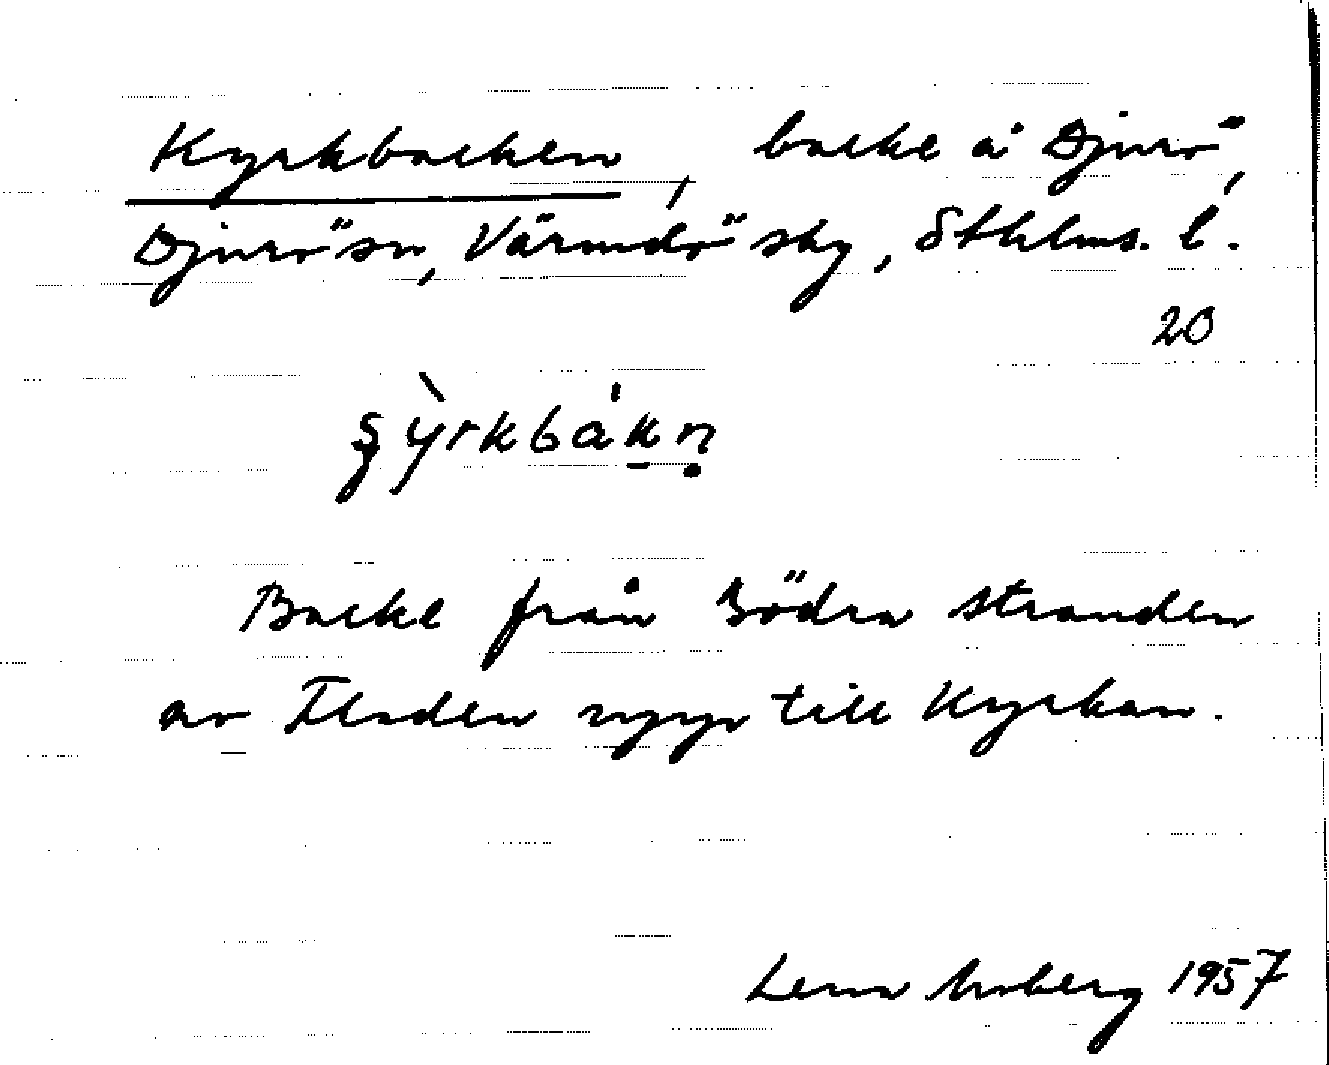 Kyrkbacken, backe å Djurö,
Djurö sn, Värmdö skg, Sthlms. l.
20
Backe från Södra stranden
av Fladen upp till Kyrkan.
Lena Moberg 1957